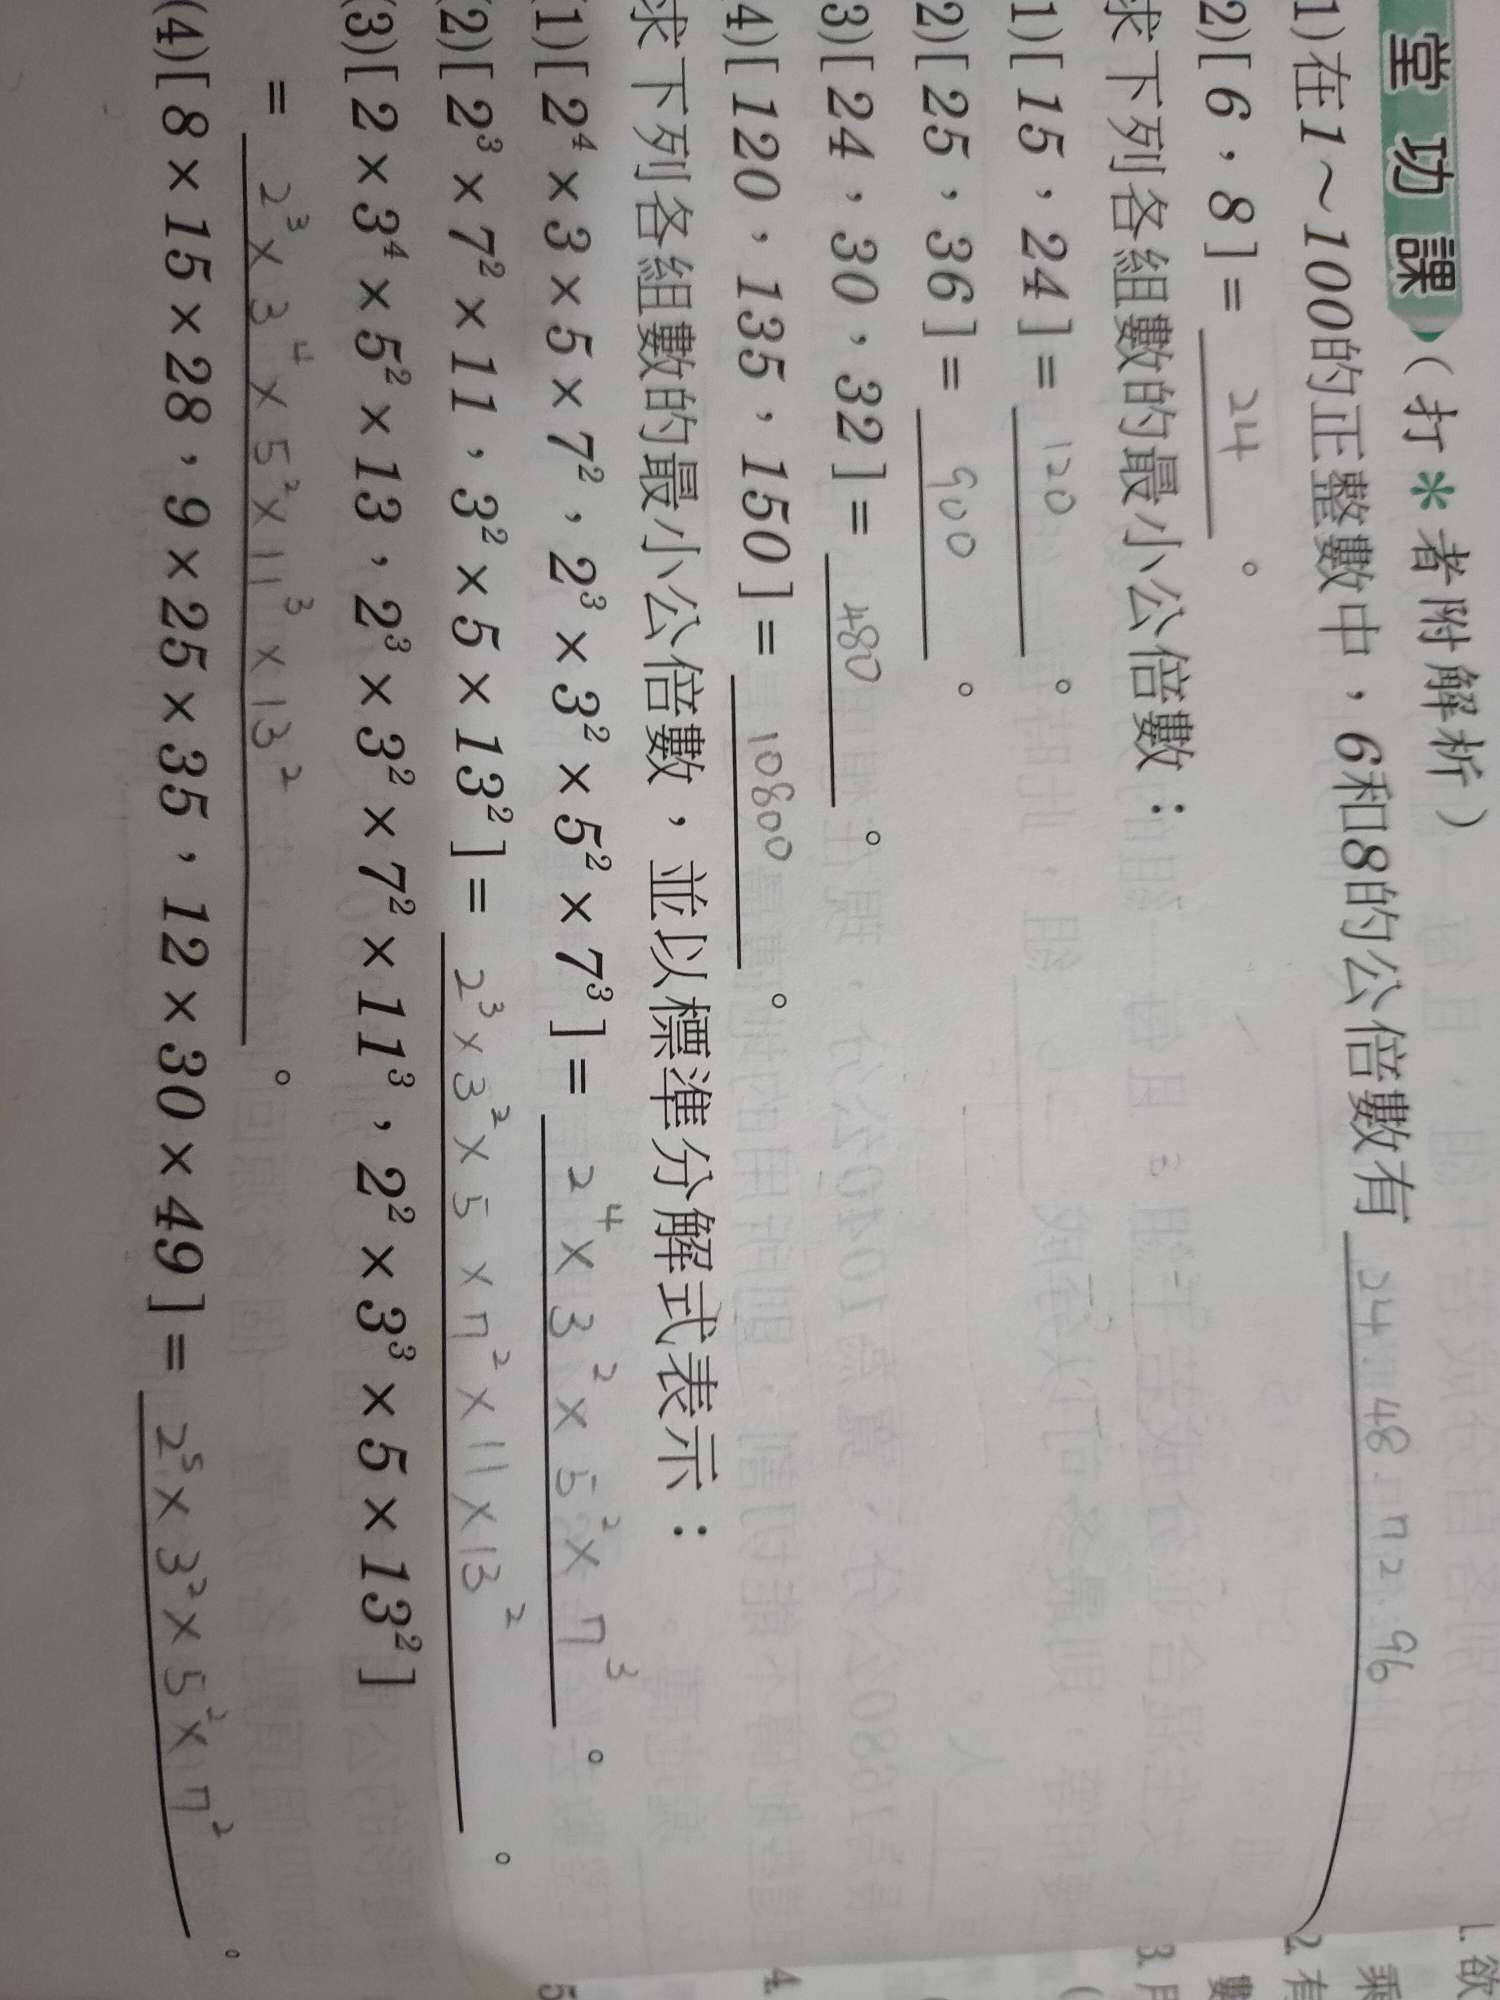 堂功課（打*者附解析）
1)在1～100的正整數中，6和8的公倍數有 24.48.72.96
2)[6，8]= 24 。
求下列各組數的最小公倍數：
1)[15，24]= 120 。
2)[25，36]= 900 。
3)[24，30，32]= 480 。
4)[120，135，150]= 10800 。
求下列各組數的最小公倍數，並以標準分解式表示：
(1)[2⁴×3×5×7²，2³×3²×5²×7³]= 2⁴×3²×5²×7³ 。
(2)[2³×7²×11，3²×5×13²]= 2³×3²×5×7²×11×13² 。
(3)[2×3⁴×5²×13，2³×3²×7²×11³，2²×3³×5×13²]
= 2³×3⁴×5²×11³×13² 。
(4)[8×15×28，9×25×35，12×30×49]= 2⁵×3²×5²×7² 。
1.欲
乘
2.有
數
3.月
(
4
5